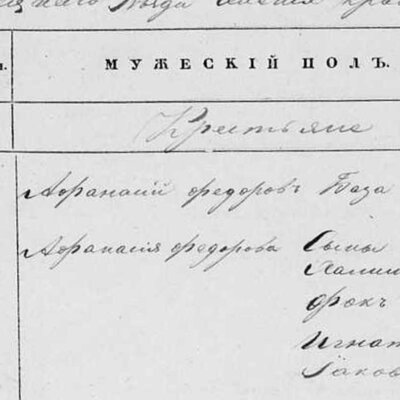 уѣзда
МУЖЕСКІЙ ПОЛЪ.
Крестьяне
Афанасий Федоровъ База
Афанасія Федорова Сыны
фокъ
Игнат
Яков